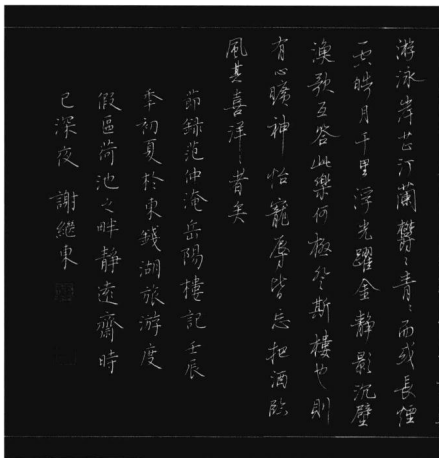 游泳岸芷汀蘭鬱〻青〻而或長煙
一空皓月千里浮光躍金靜影沉璧
漁歌互答此樂何極登斯樓也則
有心曠神怡寵辱皆忘把酒臨
風其喜洋〻者矣
節録范仲淹岳陽樓記壬辰
季初夏於東錢湖旅游度
假區荷池之畔靜遠齋時
已深夜 謝繼東